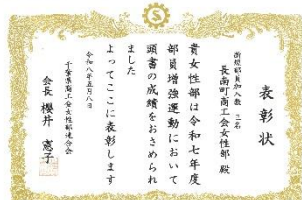 表彰状
新規部員加入数 三名
長南町商工会女性部 殿
貴女性部は令和七年度
部員増強運動において
頭書の成績をおさめられ
ました
よってここに表彰します
令和八年五月八日
千葉県商工会女性部連合会
会長 櫻井 惠子